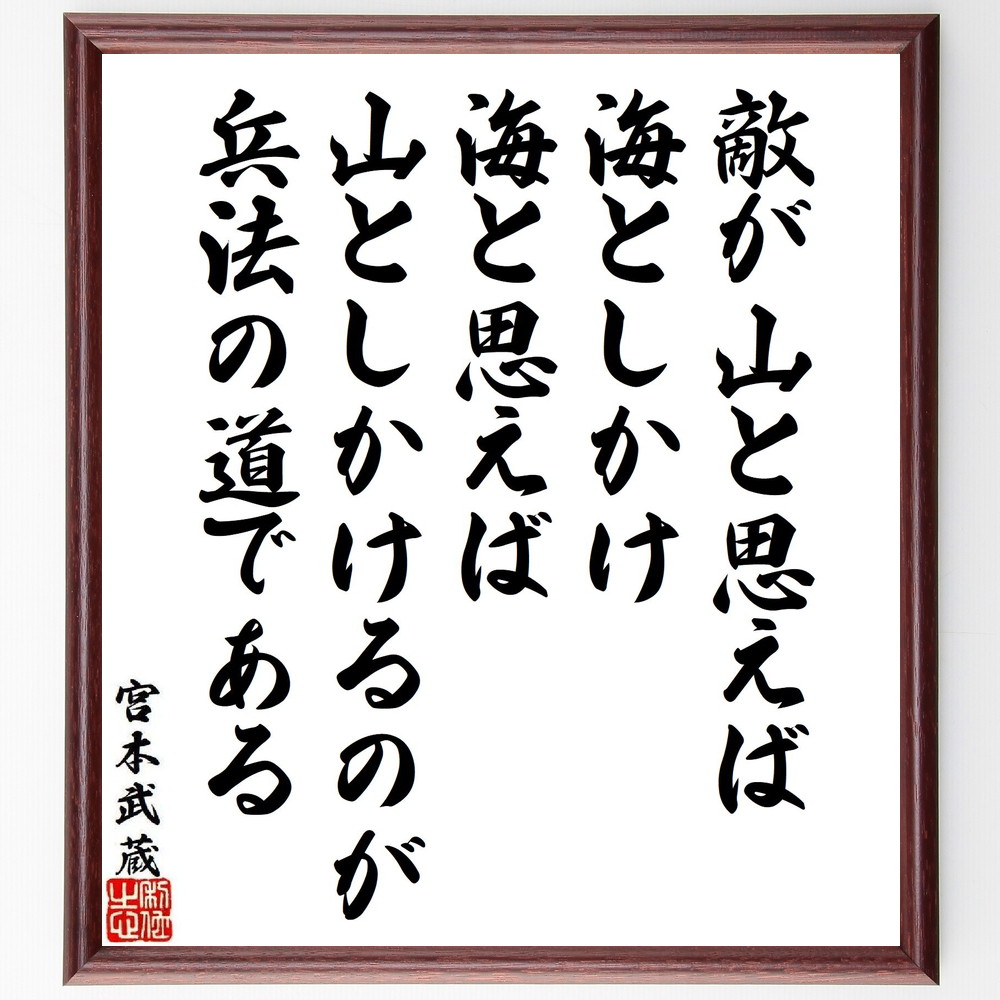 敵が山と思えば
海としかけ
海と思えば
山としかけるのが
兵法の道である
宮本武蔵